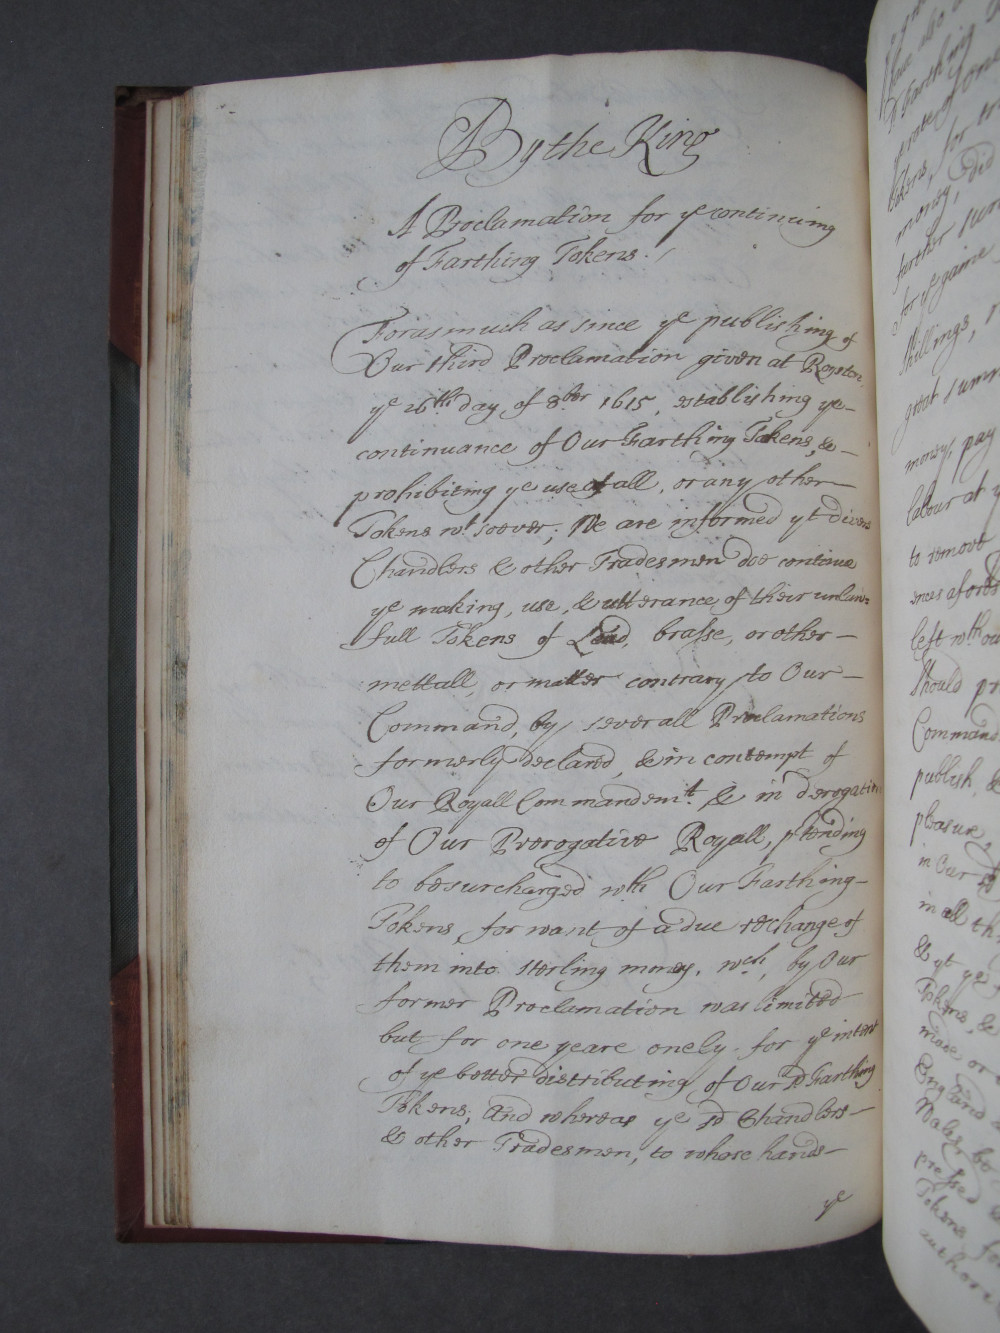 By the King
A Proclamation for ye continuing
of Farthing Tokens.
Forasmuch as since ye publishing of
Our third Proclamation given at Royston
ye 26th day of 8ber 1615, establishing ye
continuance of Our Farthing Tokens, &
prohibiting ye use of all, or any other
Tokens wt. soever; We are informed yt divers
Chandlers & other Tradesmen doe continue
ye making, use, & utterance of their unlaw=
full Tokens of Lead, brasse, or other
mettall, or matter contrary to Our
Command, by severall Proclamations
formerly declared, & in contempt of
Our Royall Commandemt. & in derogation
of Our Prerogative Royall, ptending
to be surcharged with Our Farthing
Tokens, for want of a due rechange of
them into sterling money, wch, by Our
former Proclamation was limited
but for one yeare onely for ye intent
of ye better distributing of Our sd Farthing
Tokens; And whereas ye sd Chandlers
& other Tradesmen, to whose hands
ye
Farthing
Tokens, for
money, did
further
for ye gaine
shillings,
great
money, pay
labour at
to remove
left wthout
should
Command
publish, &
pleasure,
in Our
in all
& yt ye
Tokens, &
made or
England
Wales be
Tokens